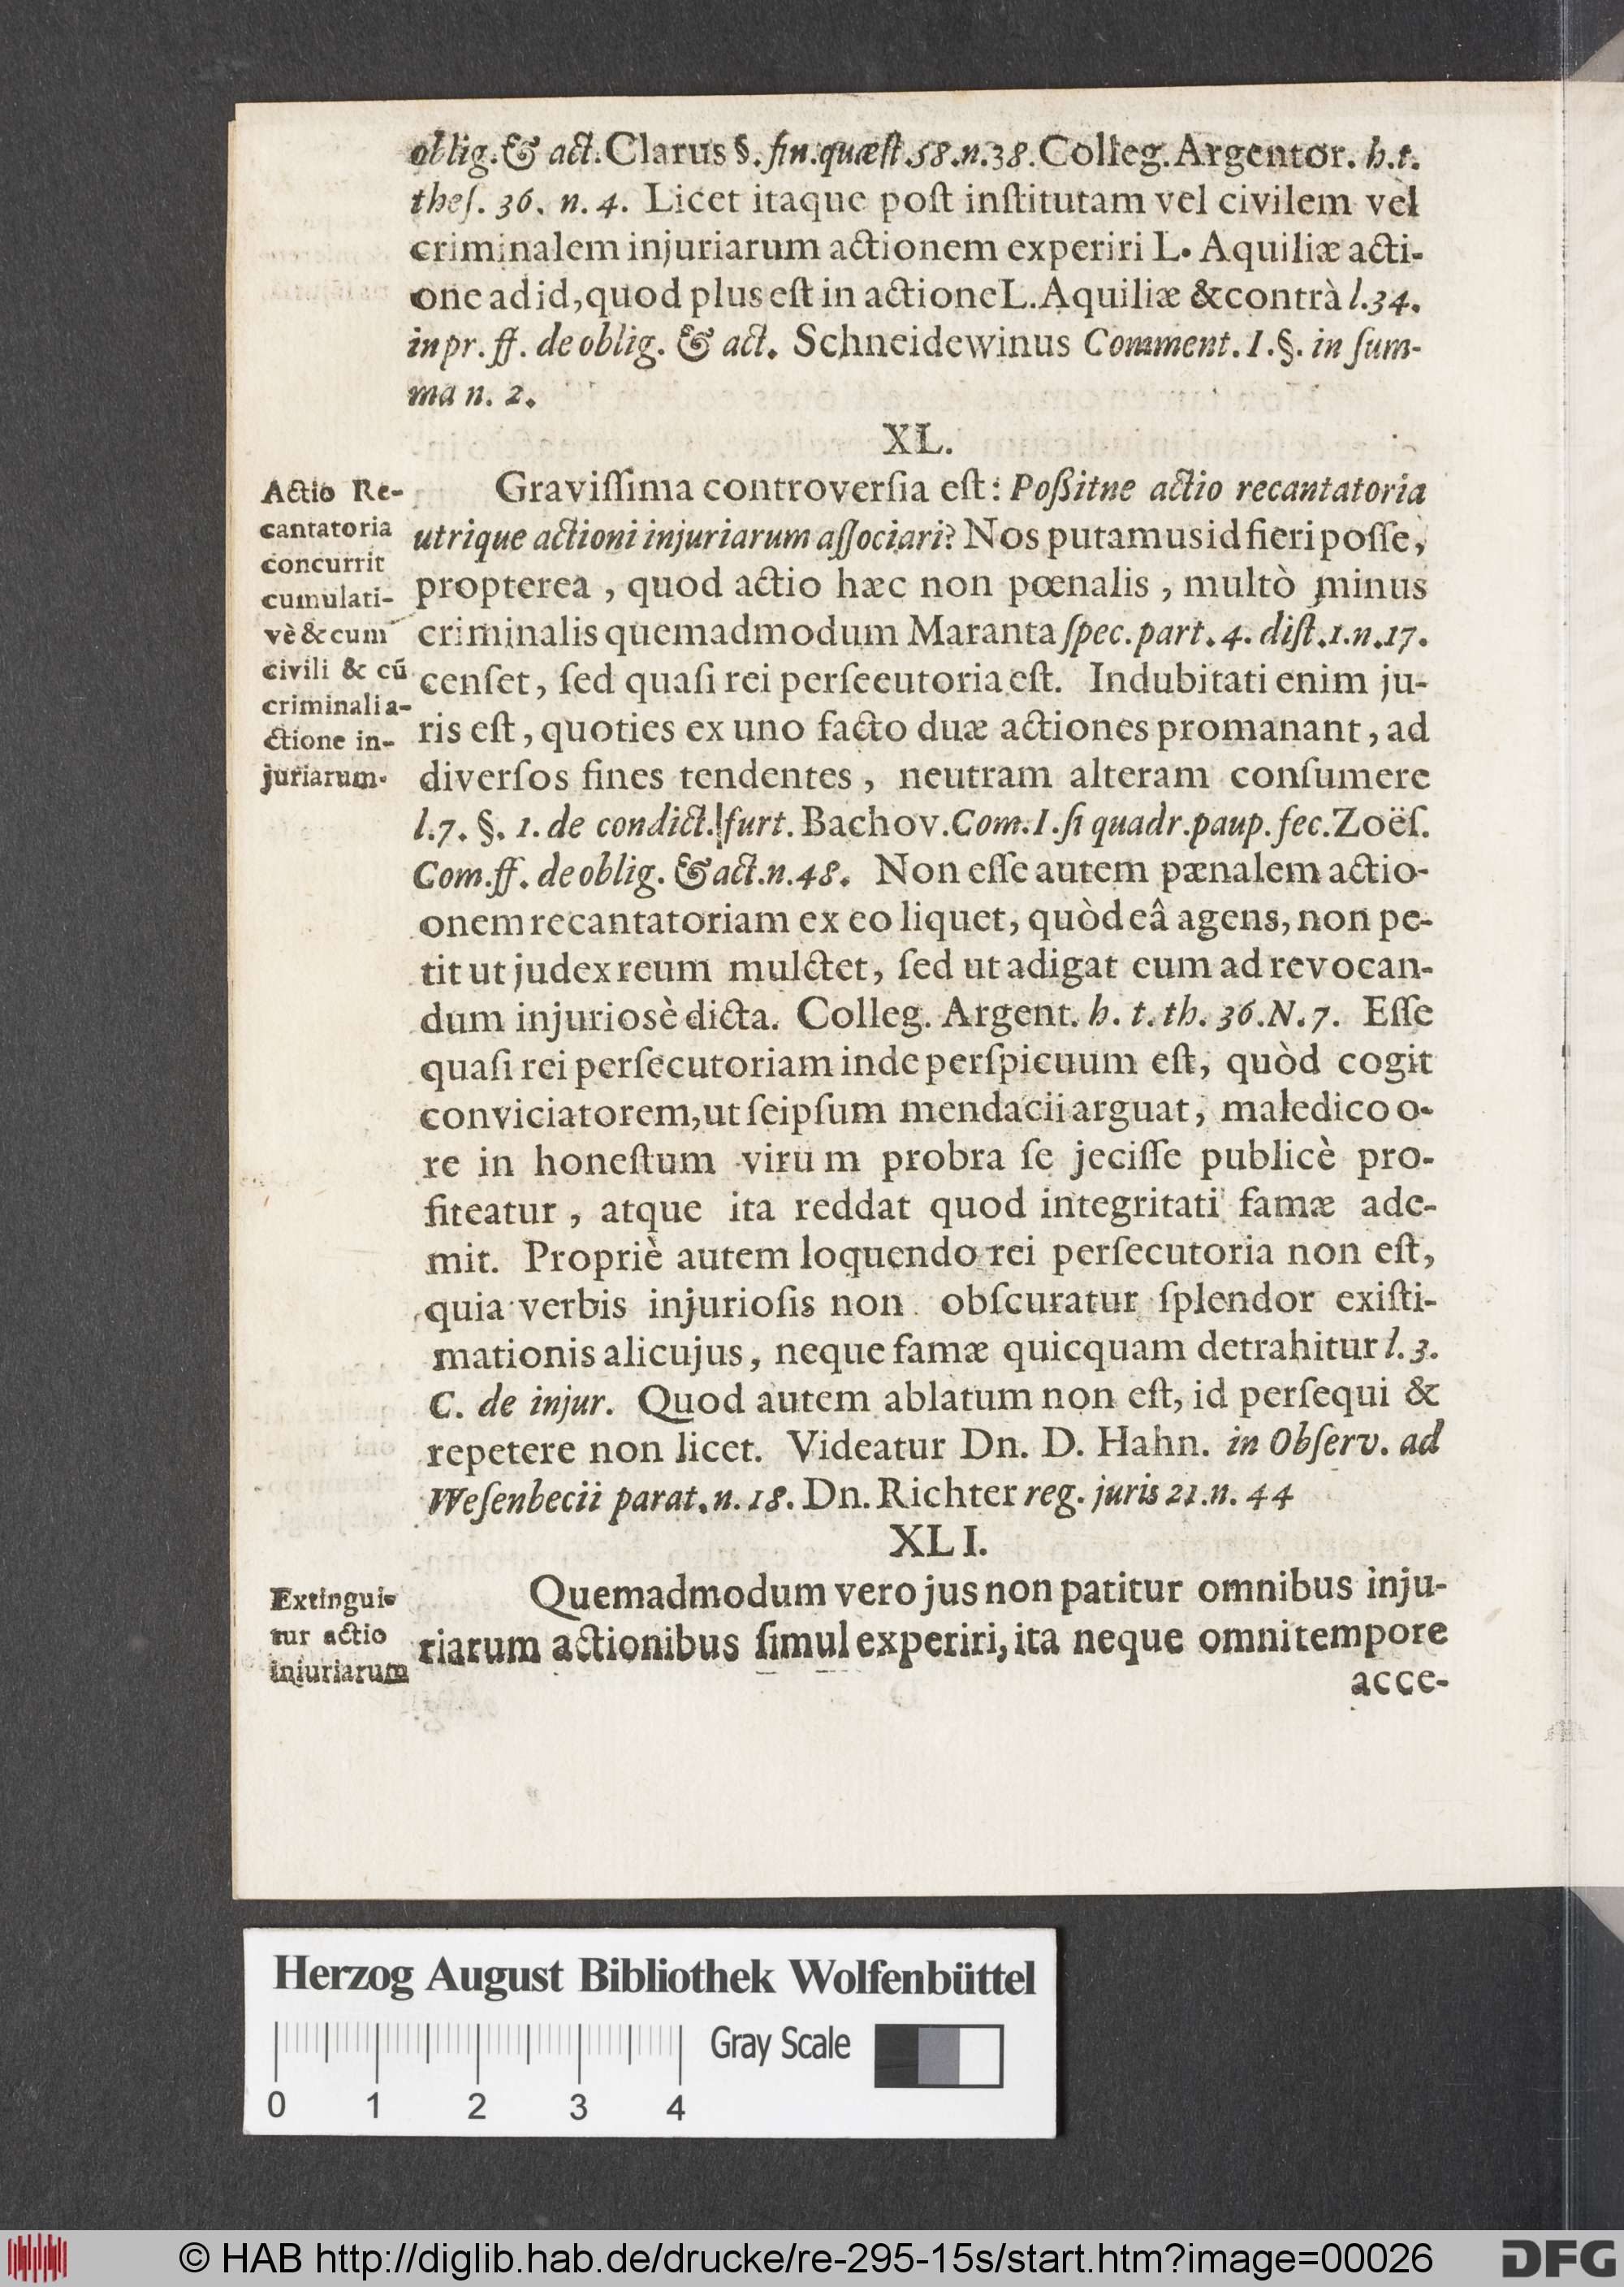 oblig. & act. Clarus §. fin. quæſt. 58. n. 38. Colleg. Argentor. h. t.
theſ. 36. n. 4. Licet itaque poſt inſtitutam vel civilem vel
criminalem injuriarum actionem experiri L. Aquiliæ acti-
one ad id, quod plus eſt in actione L. Aquiliæ & contrà l. 34.
in pr. ff. de oblig. & act. Schneidewinus Comment. I. §. in ſum-
ma n. 2.
XL.
Actio Re-
cantatoria
concurrit
cumulati-
vè & cum
civili & cū
criminali a-
ctione in-
juriarum.
Graviſſima controverſia eſt: Poßitne actio recantatoria
utrique actioni injuriarum aſſociari? Nos putamus id fieri poſſe,
propterea, quod actio hæc non pœnalis, multò minus
criminalis quemadmodum Maranta ſpec. part. 4. diſt. 1. n. 17.
cenſet, ſed quaſi rei perſeeutoria eſt. Indubitati enim ju-
ris eſt, quoties ex uno facto duæ actiones promanant, ad
diverſos fines tendentes, neutram alteram conſumere
l. 7. §. 1. de condict. furt. Bachov. Com. I. ſi quadr. paup. fec. Zoëſ.
Com. ff. de oblig. & act. n. 48. Non eſſe autem pænalem actio-
onem recantatoriam ex eo liquet, quòd eâ agens, non pe-
tit ut judex reum mulctet, ſed ut adigat eum ad revocan-
dum injuriosè dicta. Colleg. Argent. h. t. th. 36. N. 7. Eſſe
quaſi rei perſecutoriam inde perſpicuum eſt, quòd cogit
conviciatorem, ut ſeipſum mendacii arguat, maledico o-
re in honeſtum virum probra ſe jeciſſe publicè pro-
fiteatur, atque ita reddat quod integritati famæ ade-
mit. Propriè autem loquendo rei perſecutoria non eſt,
quia verbis injurioſis non obſcuratur ſplendor exiſti-
mationis alicujus, neque famæ quicquam detrahitur l. 3.
C. de injur. Quod autem ablatum non eſt, id perſequi &
repetere non licet. Videatur Dn. D. Hahn. in Obſerv. ad
Weſenbecii parat. n. 18. Dn. Richter reg. juris 21. n. 44
XLI.
Extingui-
tur actio
injuriarum
Quemadmodum vero jus non patitur omnibus inju-
riarum actionibus ſimul experiri, ita neque omni tempore
acce-
Herzog August Bibliothek Wolfenbüttel
0 1 2 3 4
Gray Scale
© HAB http://diglib.hab.de/drucke/re-295-15s/start.htm?image=00026
DFG